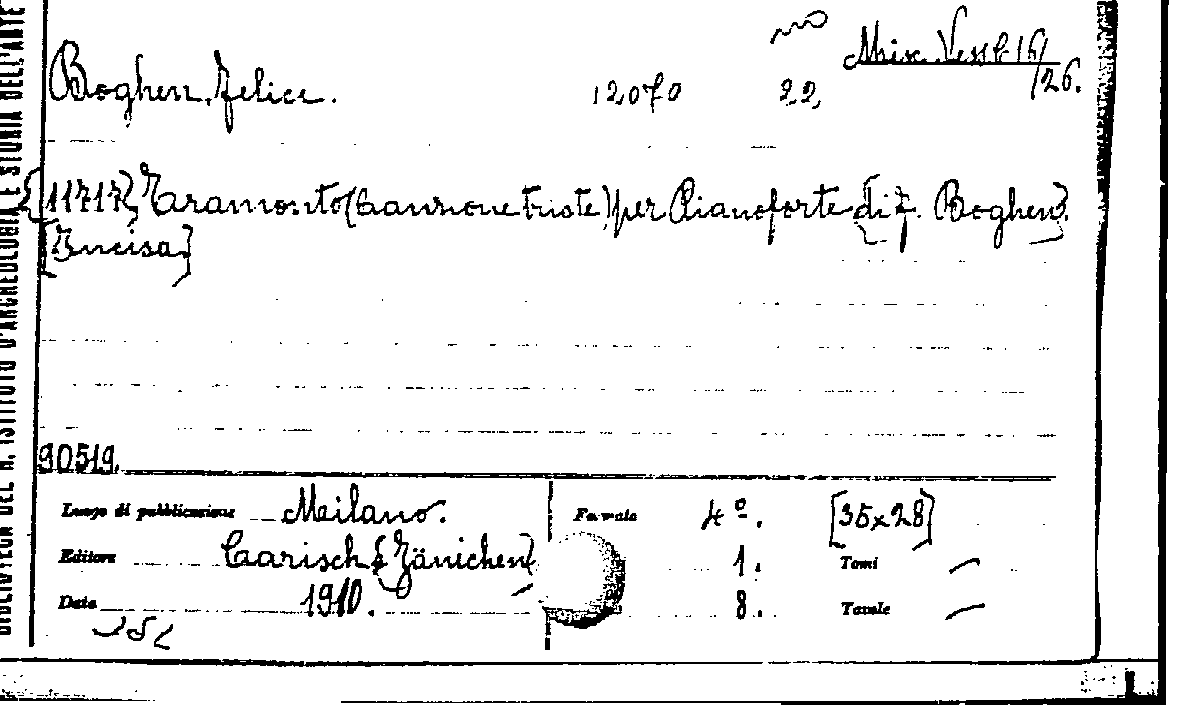 BIBLIOTECA DEL R. ISTITUTO D'ARCHEOLOGIA E STORIA DELL'ARTE
Misc. Vess B 16/26.
Boghen, Felice. 12070 22,
[11717] Taramonto (Canzone triste) per Pianoforte di F. Boghen].
[Incisa]
90519.
Luogo di pubblicazione Milano. Formato 4º. [35x28]
Editore Carisch & Jänichen] 1. Tomi
Data 1910. 8. Tavole